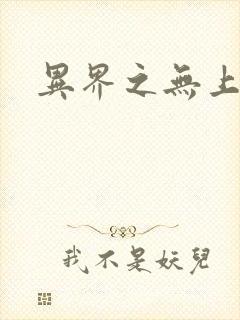 異界之無上
我不是妖兒